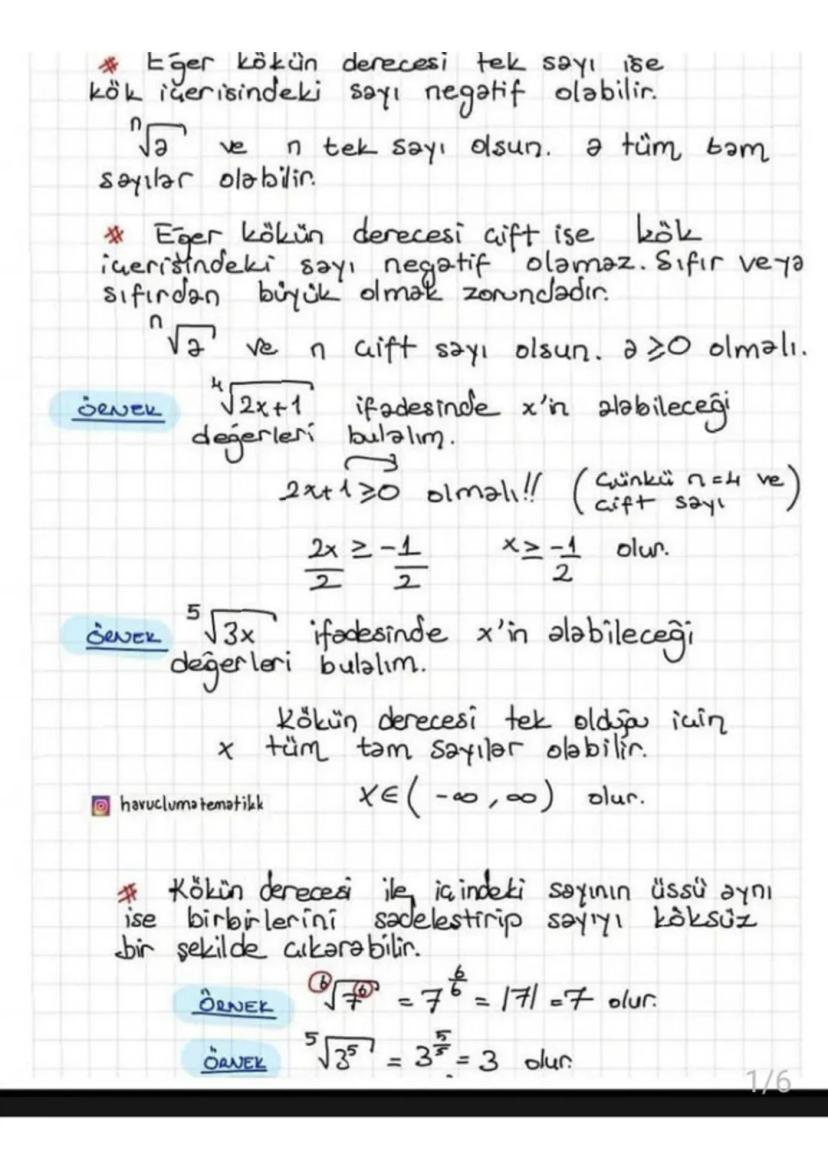 * Eğer kökün derecesi tek sayı ise
kök içerisindeki sayı negatif olabilir.
ⁿ√a ve n tek sayı olsun. a tüm tam
sayılar olabilir.
* Eğer kökün derecesi çift ise kök
içerisindeki sayı negatif olamaz. Sıfır veya
sıfırdan büyük olmak zorundadır.
ⁿ√a ve n çift sayı olsun. a ≥ 0 olmalı.
ÖRNEK ⁴√2x+1 ifadesinde x'in alabileceği
değerleri bulalım.
2x+1 ≥ 0 olmalı!! (Çünkü n=4 ve
çift sayı)
2x/2 ≥ -1/2 x ≥ -1/2 olur.
ÖRNEK ⁵√3x ifadesinde x'in alabileceği
değerleri bulalım.
Kökün derecesi tek olduğu için
x tüm tam sayılar olabilir.
havuclumatematikk x∈(-∞, ∞) olur.
* Kökün derecesi ile içindeki sayının üssü aynı
ise birbirlerini sadeleştirip sayıyı köksüz
bir şekilde çıkarabilir.
ÖRNEK ⁶√7⁶ = 7^(6/6) = |7| = 7 olur.
ÖRNEK ⁵√3⁵ = 3^(5/5) = 3 olur.
1/6